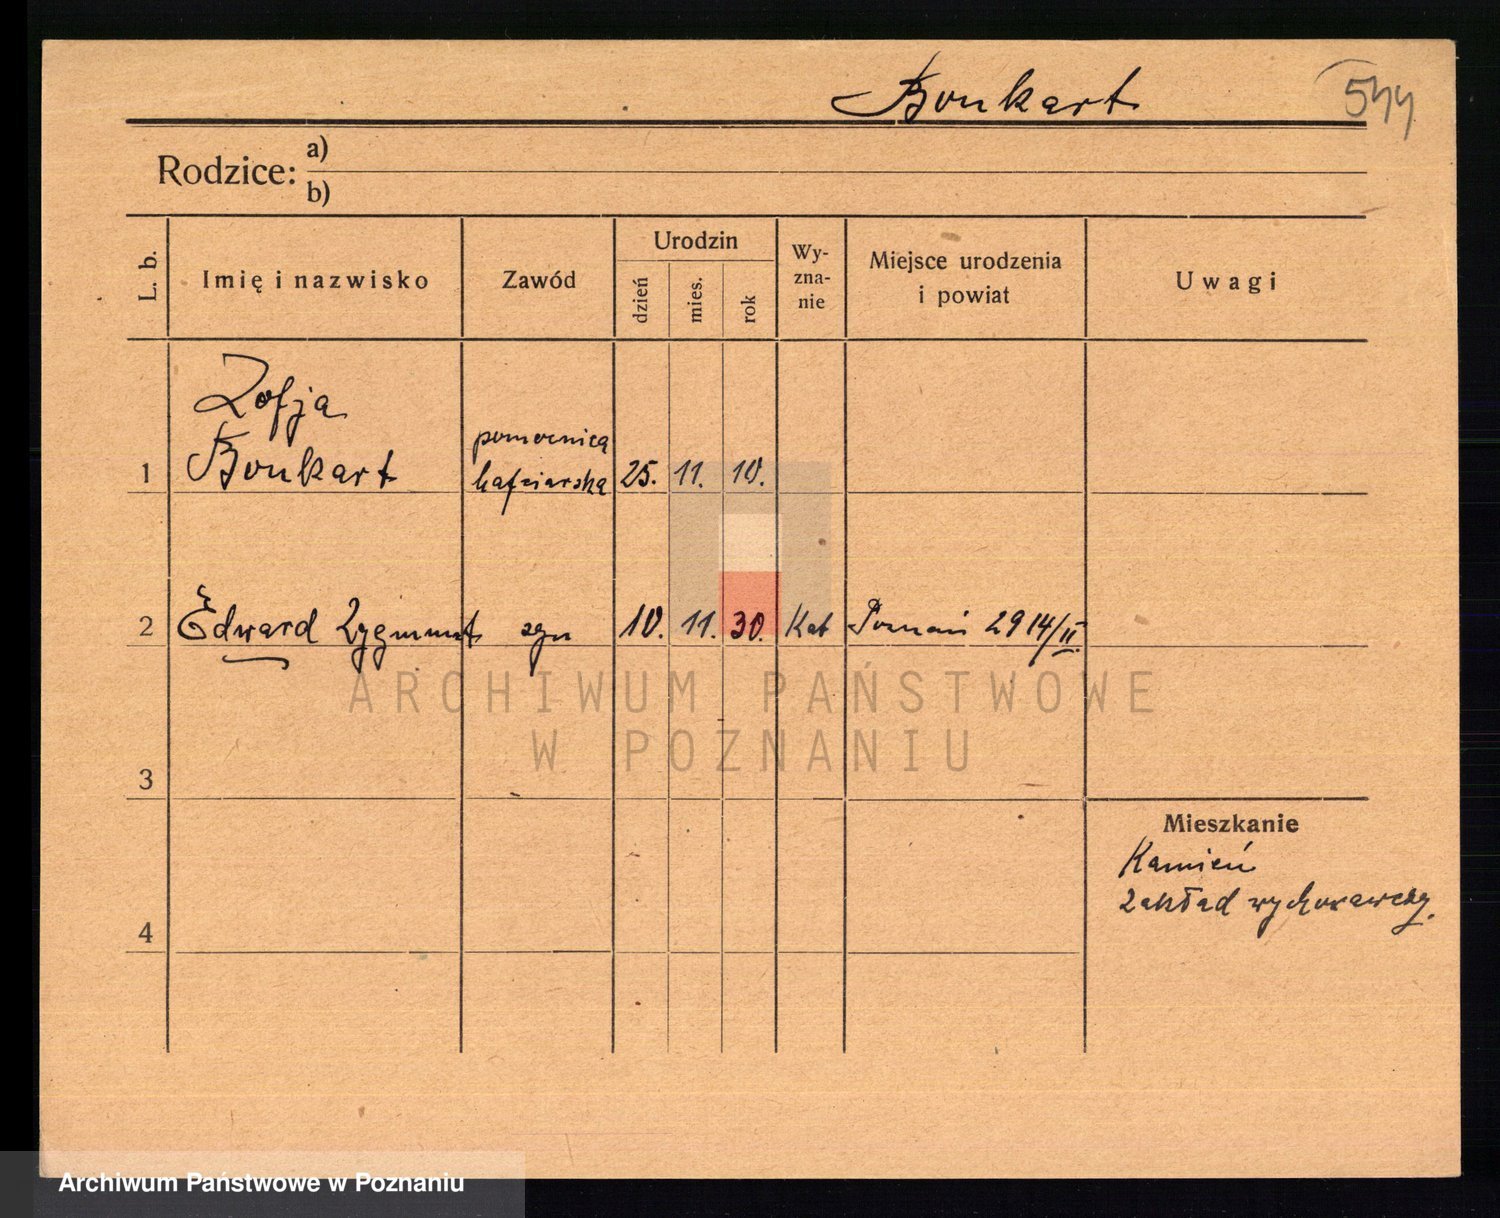 Bonkart 544
Rodzice: a)
b)
L. b.
Imię i nazwisko
Zawód
Urodzin
dzień
mies.
rok
Wy-
zna-
nie
Miejsce urodzenia
i powiat
Uwagi
Zofja
Bonkart
1
pomocnica
hafciarska
25. 11. 10.
2 Edward Zygmunt syn 10. 11. 30. Kat Poznań 2914/II
3
4
Mieszkanie
Kamień
Zakład wychowawczy.
ARCHIWUM PAŃSTWOWE
W POZNANIU
Archiwum Państwowe w Poznaniu